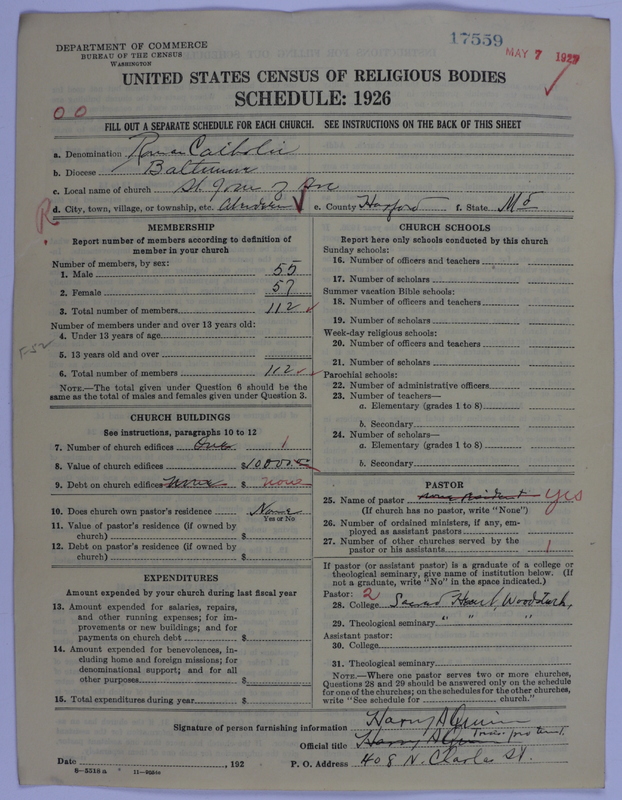 17559
MAY 7 1927
DEPARTMENT OF COMMERCE
BUREAU OF THE CENSUS
WASHINGTON
UNITED STATES CENSUS OF RELIGIOUS BODIES
SCHEDULE: 1926
00
FILL OUT A SEPARATE SCHEDULE FOR EACH CHURCH. SEE INSTRUCTIONS ON THE BACK OF THIS SHEET
a. Denomination Roman Catholic
b. Diocese Baltimore
c. Local name of church St. Joan of Arc
R
d. City, town, village, or township, etc. Aberdeen e. County Harford f. State Md
MEMBERSHIP
Report number of members according to definition of
member in your church
Number of members, by sex:
1. Male 55
2. Female 57
3. Total number of members 112
Number of members under and over 13 years old:
4. Under 13 years of age
F-52
5. 13 years old and over
6. Total number of members 112
NOTE.—The total given under Question 6 should be the
same as the total of males and females given under Question 3.
CHURCH BUILDINGS
See instructions, paragraphs 10 to 12
7. Number of church edifices One 1
8. Value of church edifices $10000
9. Debt on church edifices None $ none
10. Does church own pastor's residence None
Yes or No
11. Value of pastor's residence (if owned by
church) $
12. Debt on pastor's residence (if owned by
church) $
EXPENDITURES
Amount expended by your church during last fiscal year
13. Amount expended for salaries, repairs,
and other running expenses; for im-
provements or new buildings; and for
payments on church debt $
14. Amount expended for benevolences, in-
cluding home and foreign missions; for
denominational support; and for all
other purposes
15. Total expenditures during year $
CHURCH SCHOOLS
Report here only schools conducted by this church
Sunday schools:
16. Number of officers and teachers
17. Number of scholars
Summer vacation Bible schools:
18. Number of officers and teachers
19. Number of scholars
Week-day religious schools:
20. Number of officers and teachers
21. Number of scholars
Parochial schools:
22. Number of administrative officers
23. Number of teachers—
a. Elementary (grades 1 to 8)
b. Secondary
24. Number of scholars—
a. Elementary (grades 1 to 8)
b. Secondary
PASTOR
25. Name of pastor none resident yes
(If church has no pastor, write "None")
26. Number of ordained ministers, if any, em-
ployed as assistant pastors
27. Number of other churches served by the
pastor or his assistants 1
If pastor (or assistant pastor) is a graduate of a college or
theological seminary, give name of institution below. (If
not a graduate, write "No" in the space indicated.)
Pastor: 2
28. College Sacred Heart, Woodstock,
29. Theological seminary " " "
Assistant pastor:
30. College
31. Theological seminary
NOTE.—Where one pastor serves two or more churches,
Questions 28 and 29 should be answered only on the schedule
for one of the churches; on the schedules for the other churches,
write "See schedule for church."
Signature of person furnishing information Harry A Quinn
Official title Harry A Quinn Treas. pro tem.
Date , 192 P. O. Address 408 N. Charles St.
8—5518 a 11—9684a